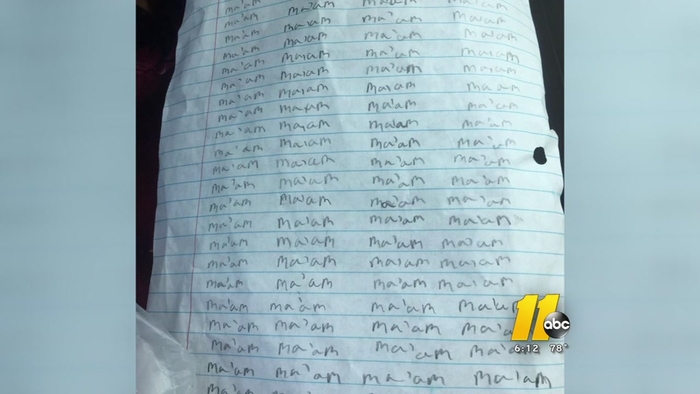 ma'am ma'am ma'am ma'am
ma'am ma'am ma'am ma'am
ma'am ma'am ma'am ma'am
ma'am ma'am ma'am ma'am
ma'am ma'am ma'am ma'am
ma'am ma'am ma'am ma'am
ma'am ma'am ma'am ma'am
ma'am ma'am ma'am ma'am
ma'am ma'am ma'am ma'am
ma'am ma'am ma'am ma'am
ma'am ma'am ma'am ma'am
ma'am ma'am ma'am ma'am
ma'am ma'am ma'am ma'am
ma'am ma'am ma'am ma'am
ma'am ma'am ma'am ma'am
ma'am ma'am ma'am ma'am
ma'am ma'am ma'am ma'am
ma'am ma'am ma'am ma'a
ma'am ma'am ma'am ma'a
ma'am ma'am ma'am ma'am
ma'am ma'am ma'am
11 abc
6:12 78°